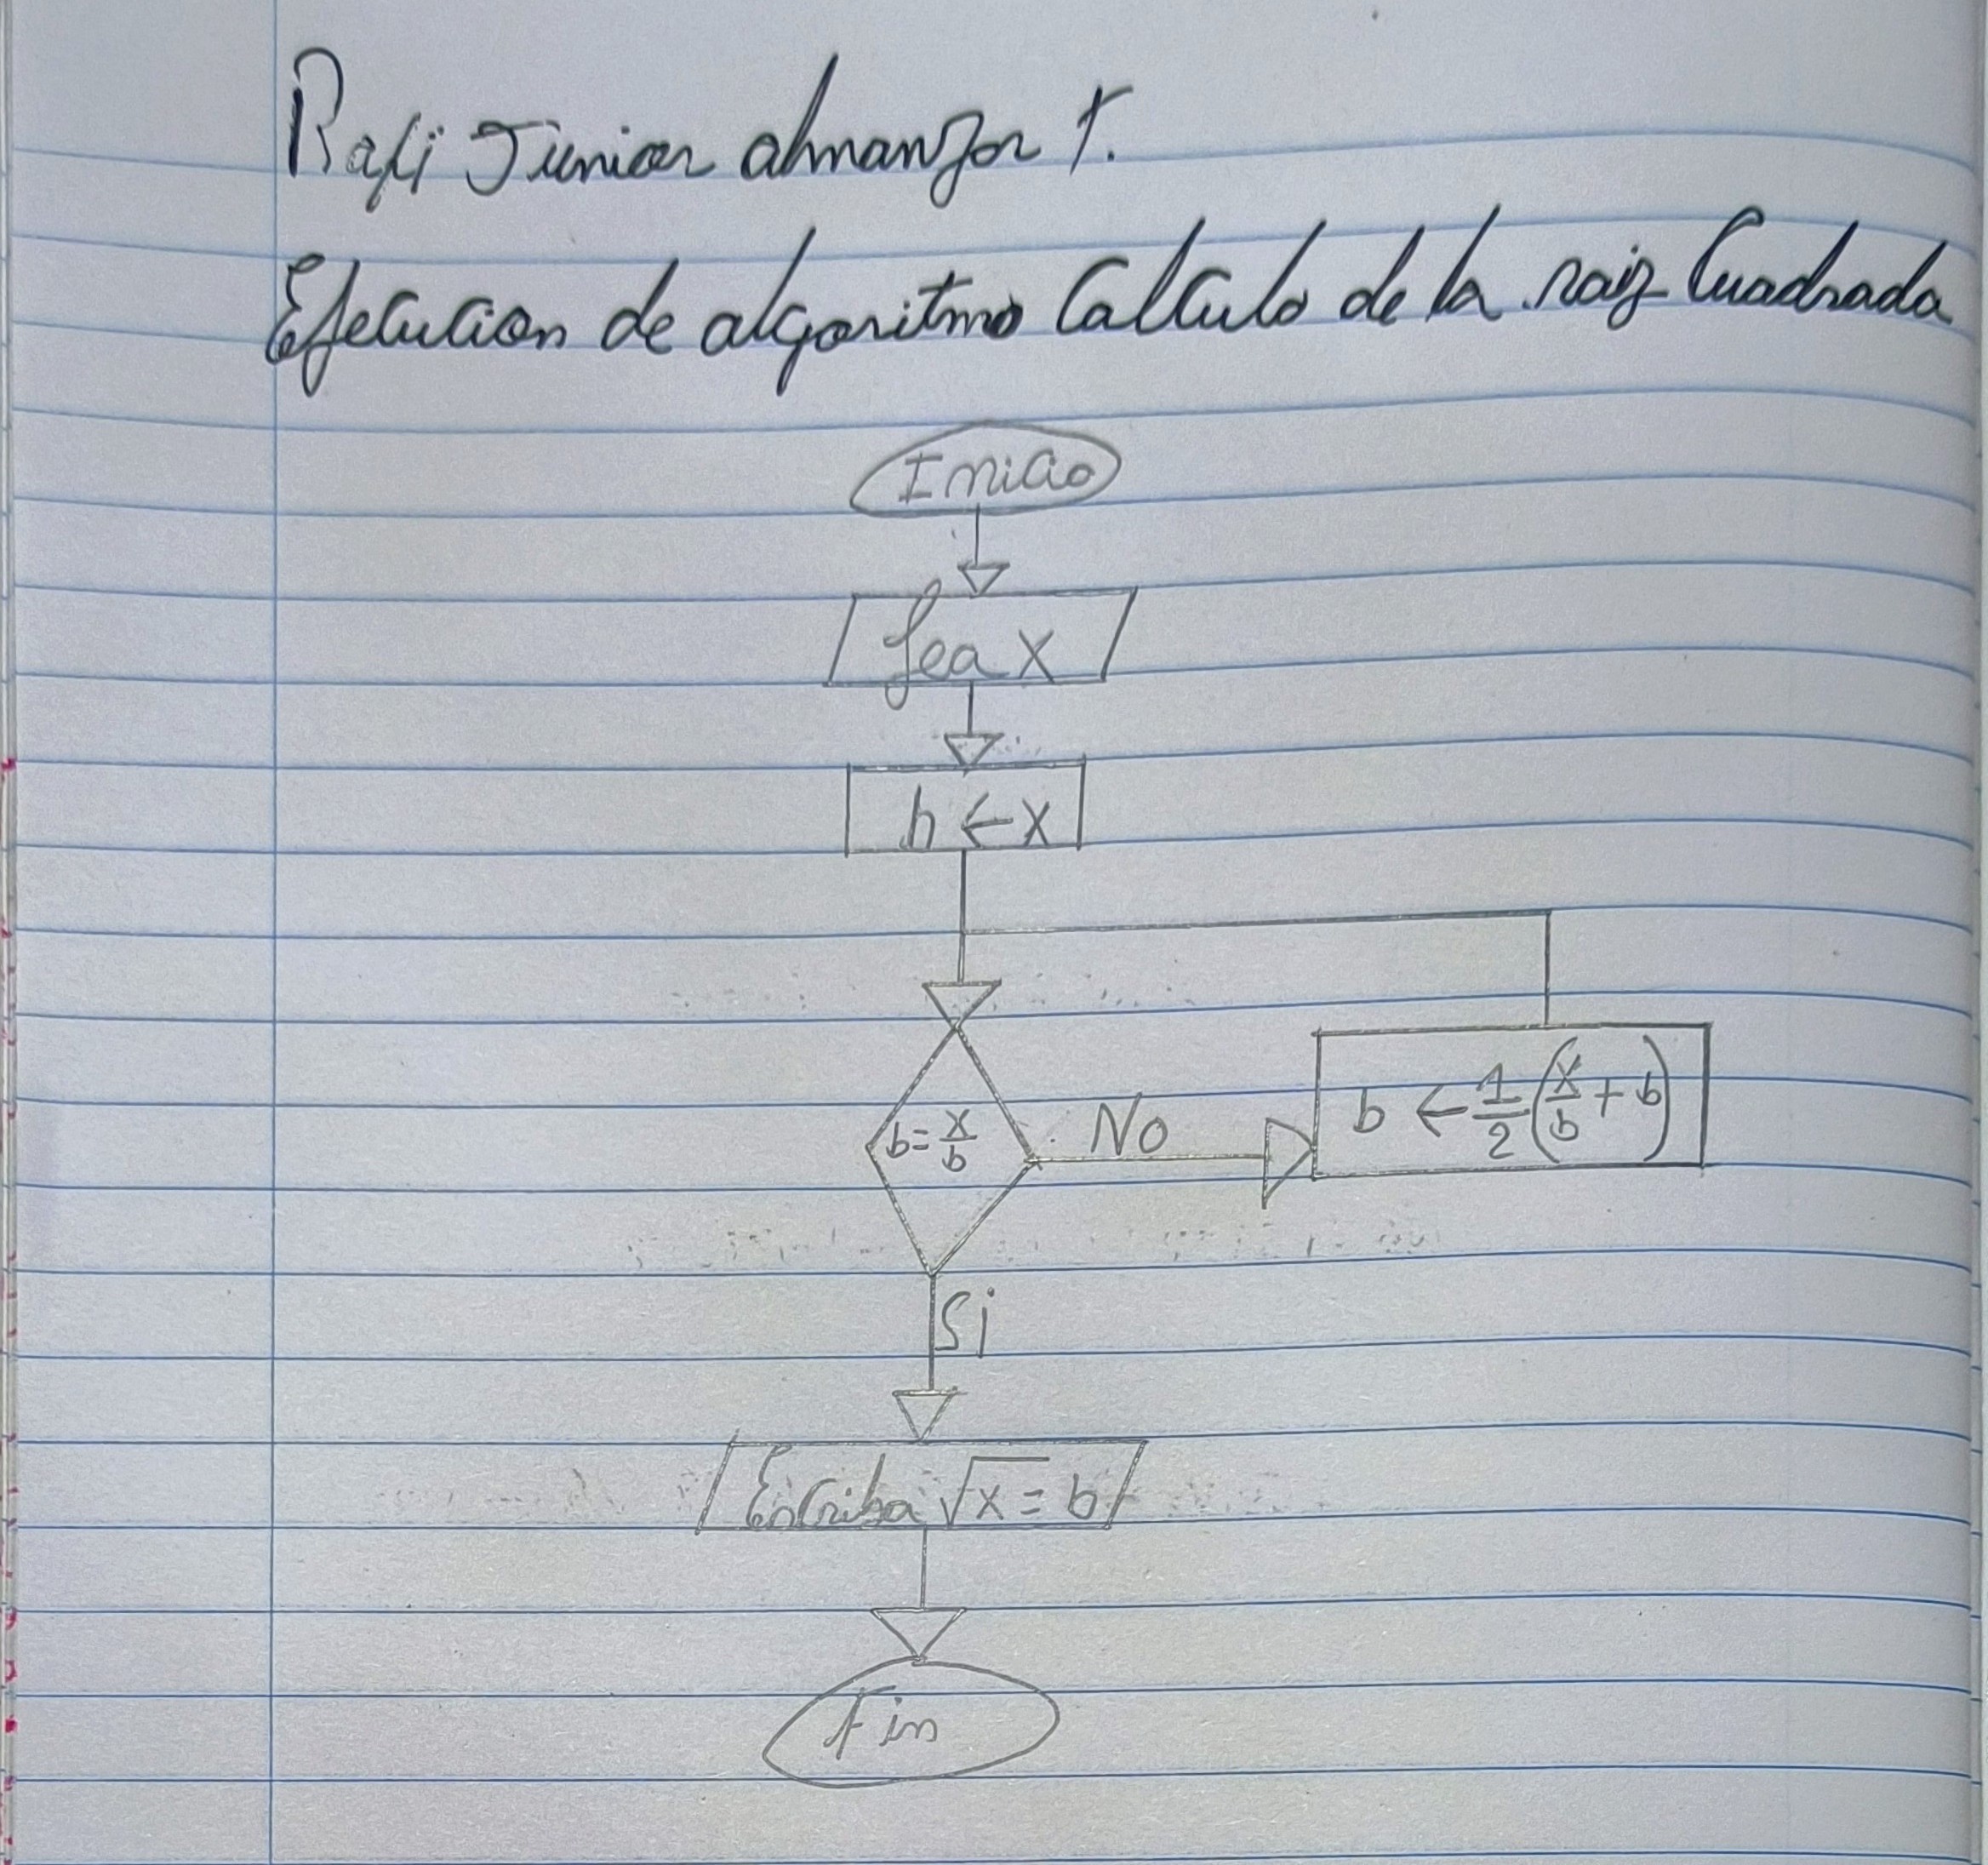 Rafi Junior almanzor t.
Ejecucion de algoritmo Calculo de la raiz Cuadrada
Inicio
Lea x
h ← x
b = x/b
No
b ← 1/2 (x/b + b)
Si
Escriba √x = b
Fin